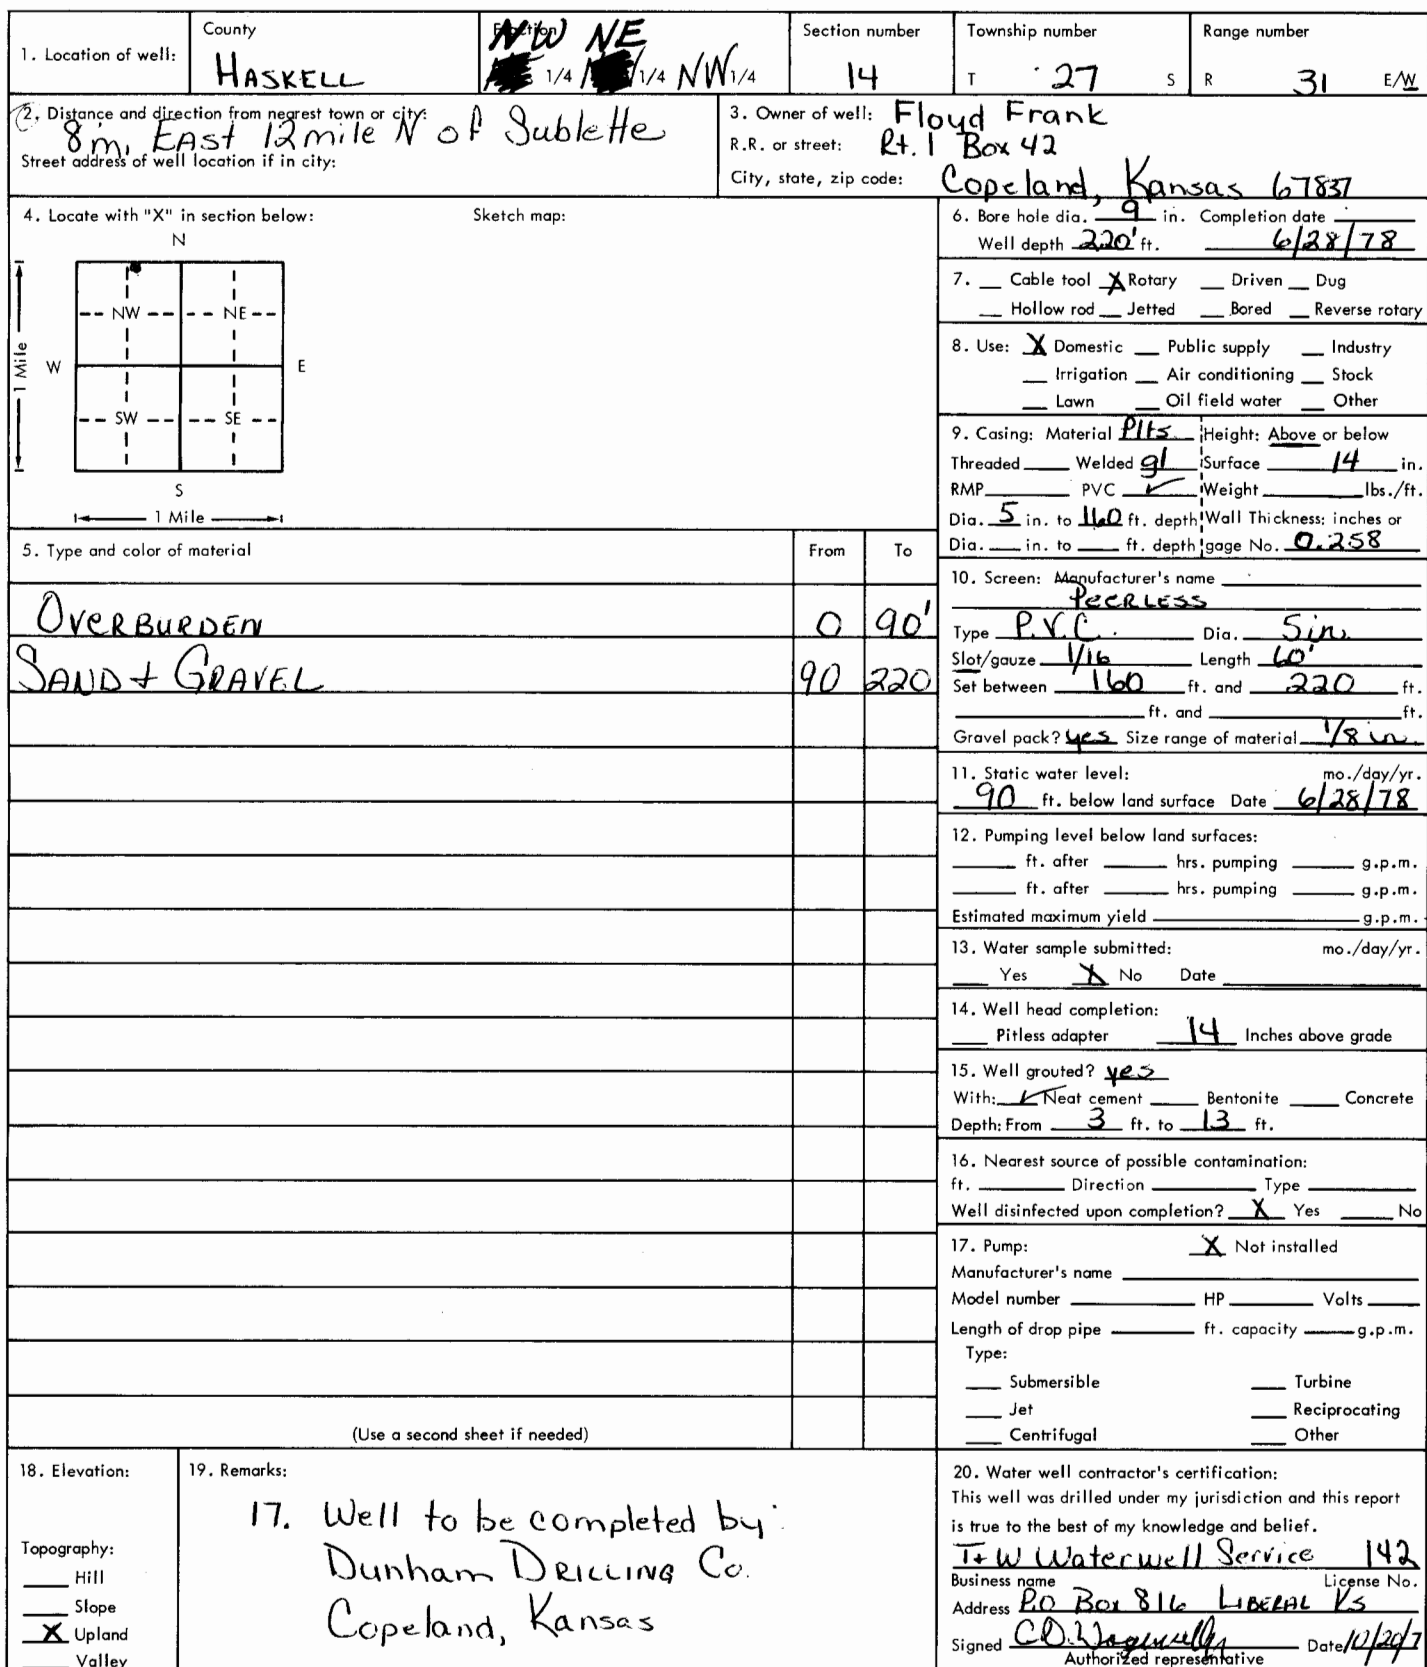 1. Location of well:
County
HASKELL
NW NE
1/4 1/4 NW 1/4
Section number
14
Township number
T 27 S
Range number
R 31 E/W
2. Distance and direction from nearest town or city:
8 m. EAST 12 mile N of Sublette
Street address of well location if in city:
3. Owner of well: Floyd Frank
R.R. or street: Rt. 1 Box 42
City, state, zip code: Copeland, Kansas 67837
4. Locate with "X" in section below:
Sketch map:
N
NW NE
W E
SW SE
S
1 Mile
1 Mile
5. Type and color of material From To
OVERBURDEN 0 90'
SAND + GRAVEL 90 220
(Use a second sheet if needed)
6. Bore hole dia. 9 in. Completion date
Well depth 220' ft. 6/28/78
7. Cable tool X Rotary Driven Dug
Hollow rod Jetted Bored Reverse rotary
8. Use: X Domestic Public supply Industry
Irrigation Air conditioning Stock
Lawn Oil field water Other
9. Casing: Material Plts Height: Above or below
Threaded Welded gl Surface 14 in.
RMP PVC ✓ Weight lbs./ft.
Dia. 5 in. to 160 ft. depth Wall Thickness: inches or
Dia. in. to ft. depth gage No. 0.258
10. Screen: Manufacturer's name
PEERLESS
Type P.V.C. Dia. 5in.
Slot/gauze 1/16 Length 60'
Set between 160 ft. and 220 ft.
ft. and ft.
Gravel pack? yes Size range of material 1/8 in
11. Static water level: mo./day/yr.
90 ft. below land surface Date 6/28/78
12. Pumping level below land surfaces:
ft. after hrs. pumping g.p.m.
ft. after hrs. pumping g.p.m.
Estimated maximum yield g.p.m.
13. Water sample submitted: mo./day/yr.
Yes X No Date
14. Well head completion:
Pitless adapter 14 Inches above grade
15. Well grouted? yes
With: ✓ Neat cement Bentonite Concrete
Depth: From 3 ft. to 13 ft.
16. Nearest source of possible contamination:
ft. Direction Type
Well disinfected upon completion? X Yes No
17. Pump: X Not installed
Manufacturer's name
Model number HP Volts
Length of drop pipe ft. capacity g.p.m.
Type:
Submersible Turbine
Jet Reciprocating
Centrifugal Other
18. Elevation:
Topography:
Hill
Slope
X Upland
Valley
19. Remarks:
17. Well to be completed by:
Dunham DRILLING Co.
Copeland, Kansas
20. Water well contractor's certification:
This well was drilled under my jurisdiction and this report
is true to the best of my knowledge and belief.
T+W Waterwell Service 142
Business name License No.
Address P.O Box 816 LIBERAL KS
Signed C.D. Date 10/20/7
Authorized representative